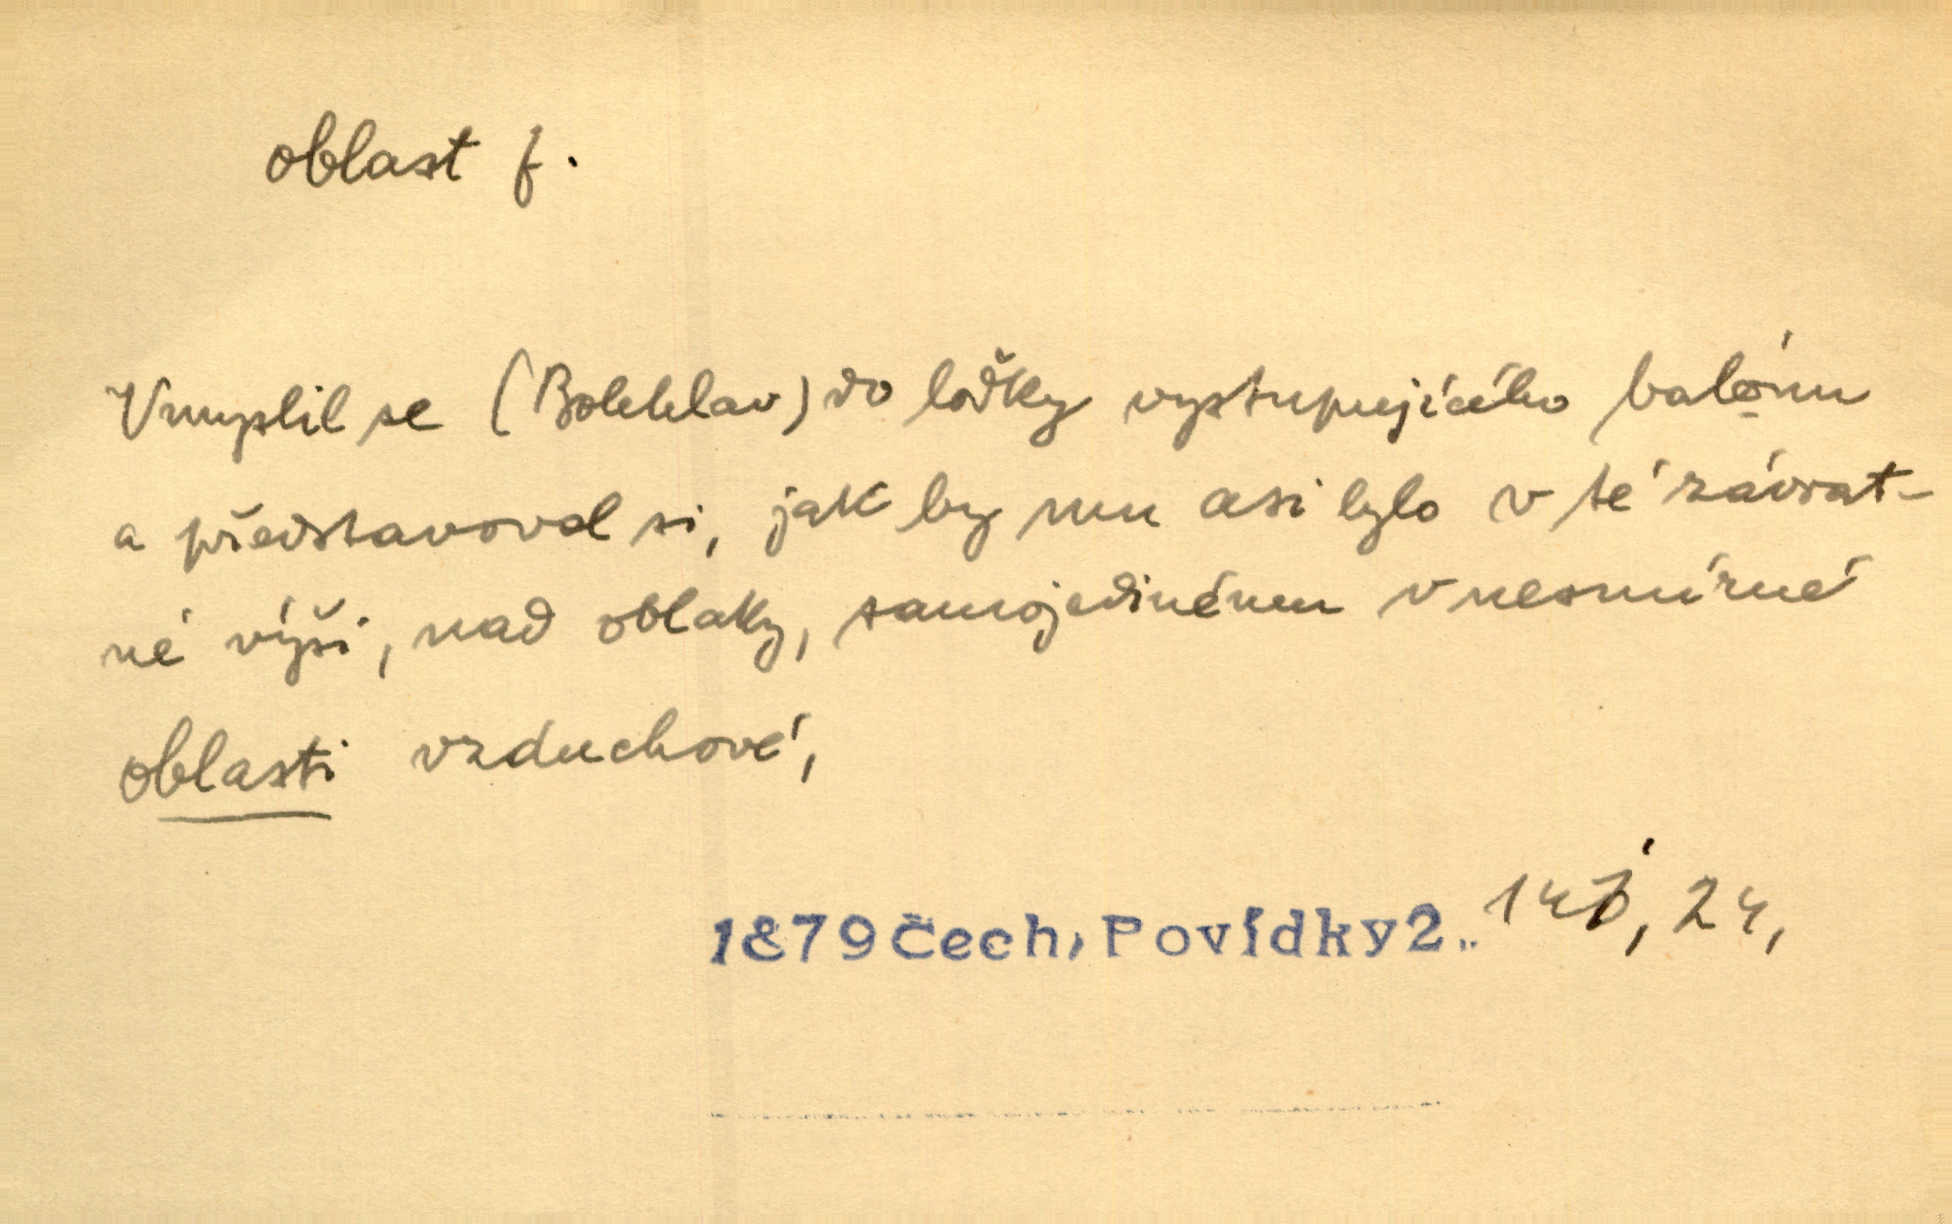 oblast f.
Vmyslil se (Bohdslav) do loďky vystupujícího balónu
a představoval si, jak by mu asi bylo v té závrat-
né výši, nad oblaky, samojedinému v nesmírné
oblasti vzduchové,
1879 Čech, Povídky 2., 24,